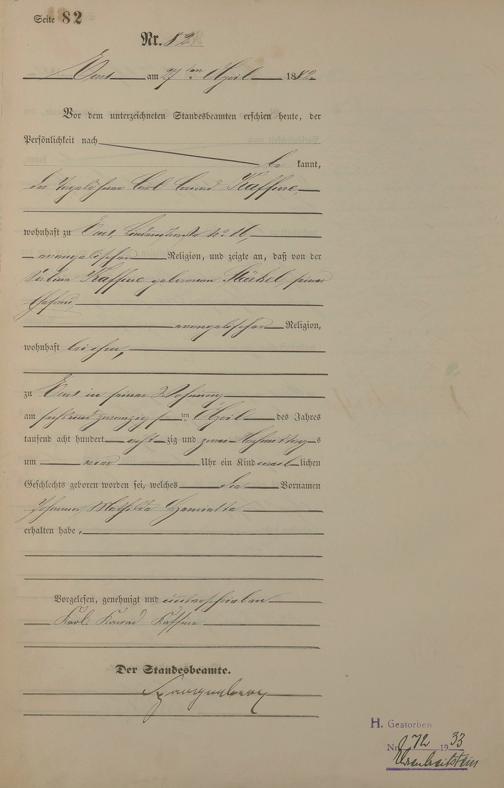 Seite 82
Nr. 82
Ems am 27ten April 1882
Vor dem unterzeichneten Standesbeamten erschien heute, der
Persönlichkeit nach
be kannt,
der Carl Conrad Kaffine
wohnhaft zu Ems, No 16,
evangelischer Religion, und zeigte an, daß von der
Kaffine geborenen seiner
Ehefrau
evangelischer Religion,
wohnhaft bei ihm,
zu Ems in seiner Wohnung
am sechsundzwanzigsten April des Jahres
tausend acht hundert achtzig und zwei Nachmittags
um neun Uhr ein Kind weiblichen
Geschlechts geboren worden sei, welches die Vornamen
Johanna Mathilde
erhalten habe.
Vorgelesen, genehmigt und unterschrieben
Karl Konrad Kaffine
Der Standesbeamte.
H. Gestorben
Nr. 72 1933